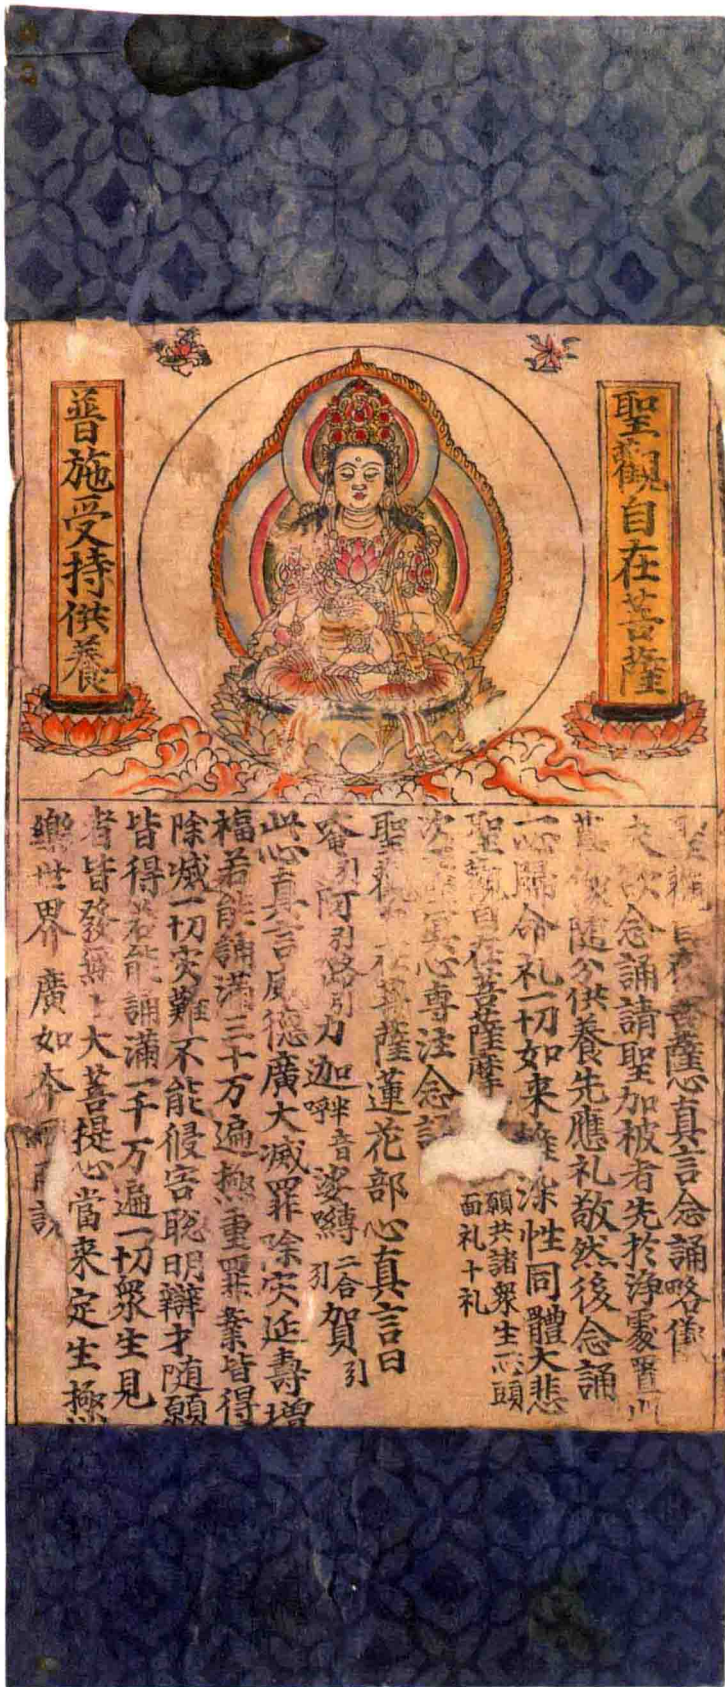 聖觀自在菩薩
普施受持供養
聖觀自在菩薩心真言念誦略儀
夫欲念誦請聖加被者先於淨處置
舊像隨分供養先應礼敬然後念誦
一心歸命礼一切如来 染性同體大悲
聖觀自在菩薩摩 願共諸衆生 頭
面礼十礼
心專注念
聖觀 在菩薩蓮花部心真言曰
唵引阿引路引力迦半音娑嚩二合引賀引
此心真言威德廣大滅罪除灾延壽增
福若能誦滿三十万遍極重罪業皆得
除滅一切灾難不能侵害聡明辯才随願
皆得若能誦滿一千万遍一切衆生見
者皆發無上大菩提心當来定生極
樂世界廣如本 説